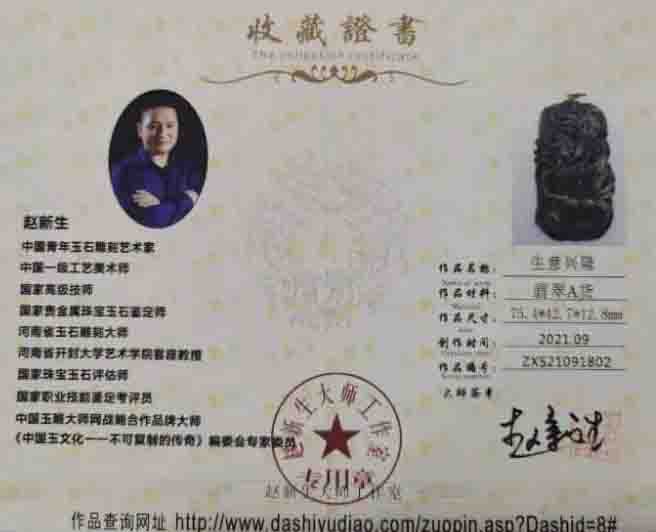 收藏證書
The collection certificate
赵新生
中国青年玉石雕刻艺术家
中国一级工艺美术师
国家高级技师
国家贵金属珠宝玉石鉴定师
河南省玉石雕刻大师
河南省开封大学艺术学院客座教授
国家珠宝玉石评估师
国家职业技能鉴定考评员
中国玉雕大师网战略合作品牌大师
《中国玉文化——不可复制的传奇》编委会专家委员
作品名称: 生意兴隆
作品材料: 翡翠A货
作品尺寸: 75.4*42.7*12.8mm
制作时间: 2021.09
作品编号: ZXS21091802
大师签章
赵新生
赵新生大师工作室
专用章
赵新生大师工作室
作品查询网址 http://www.dashiyudiao.com/zuopin.asp?Dashid=8#